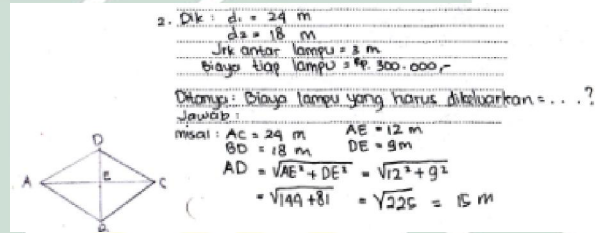 2. Dik : d₁ = 24 m
d₂ = 18 m
Jrk antar lampu = 3 m
Biaya tiap lampu = Rp. 300.000,-
Ditanya : Biaya lampu yang harus dikeluarkan = . . . ?
Jawab :
misal : AC = 24 m AE = 12 m
BD = 18 m DE = 9m
AD = √AE² + DE² = √12² + 9²
= √144 + 81 = √225 = 15 m
D
A E C
B